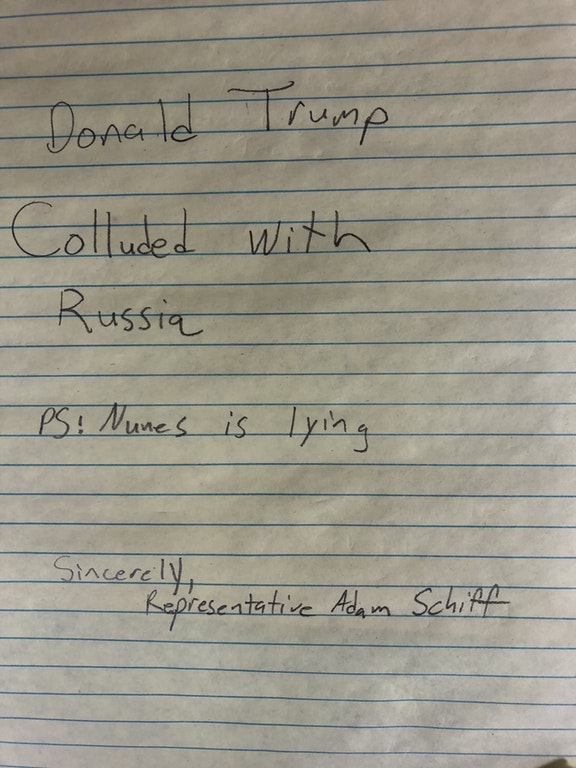 Donald Trump
Colluded with
Russia
PS! Nunes is lying
Sincerely,
Representative Adam Schiff